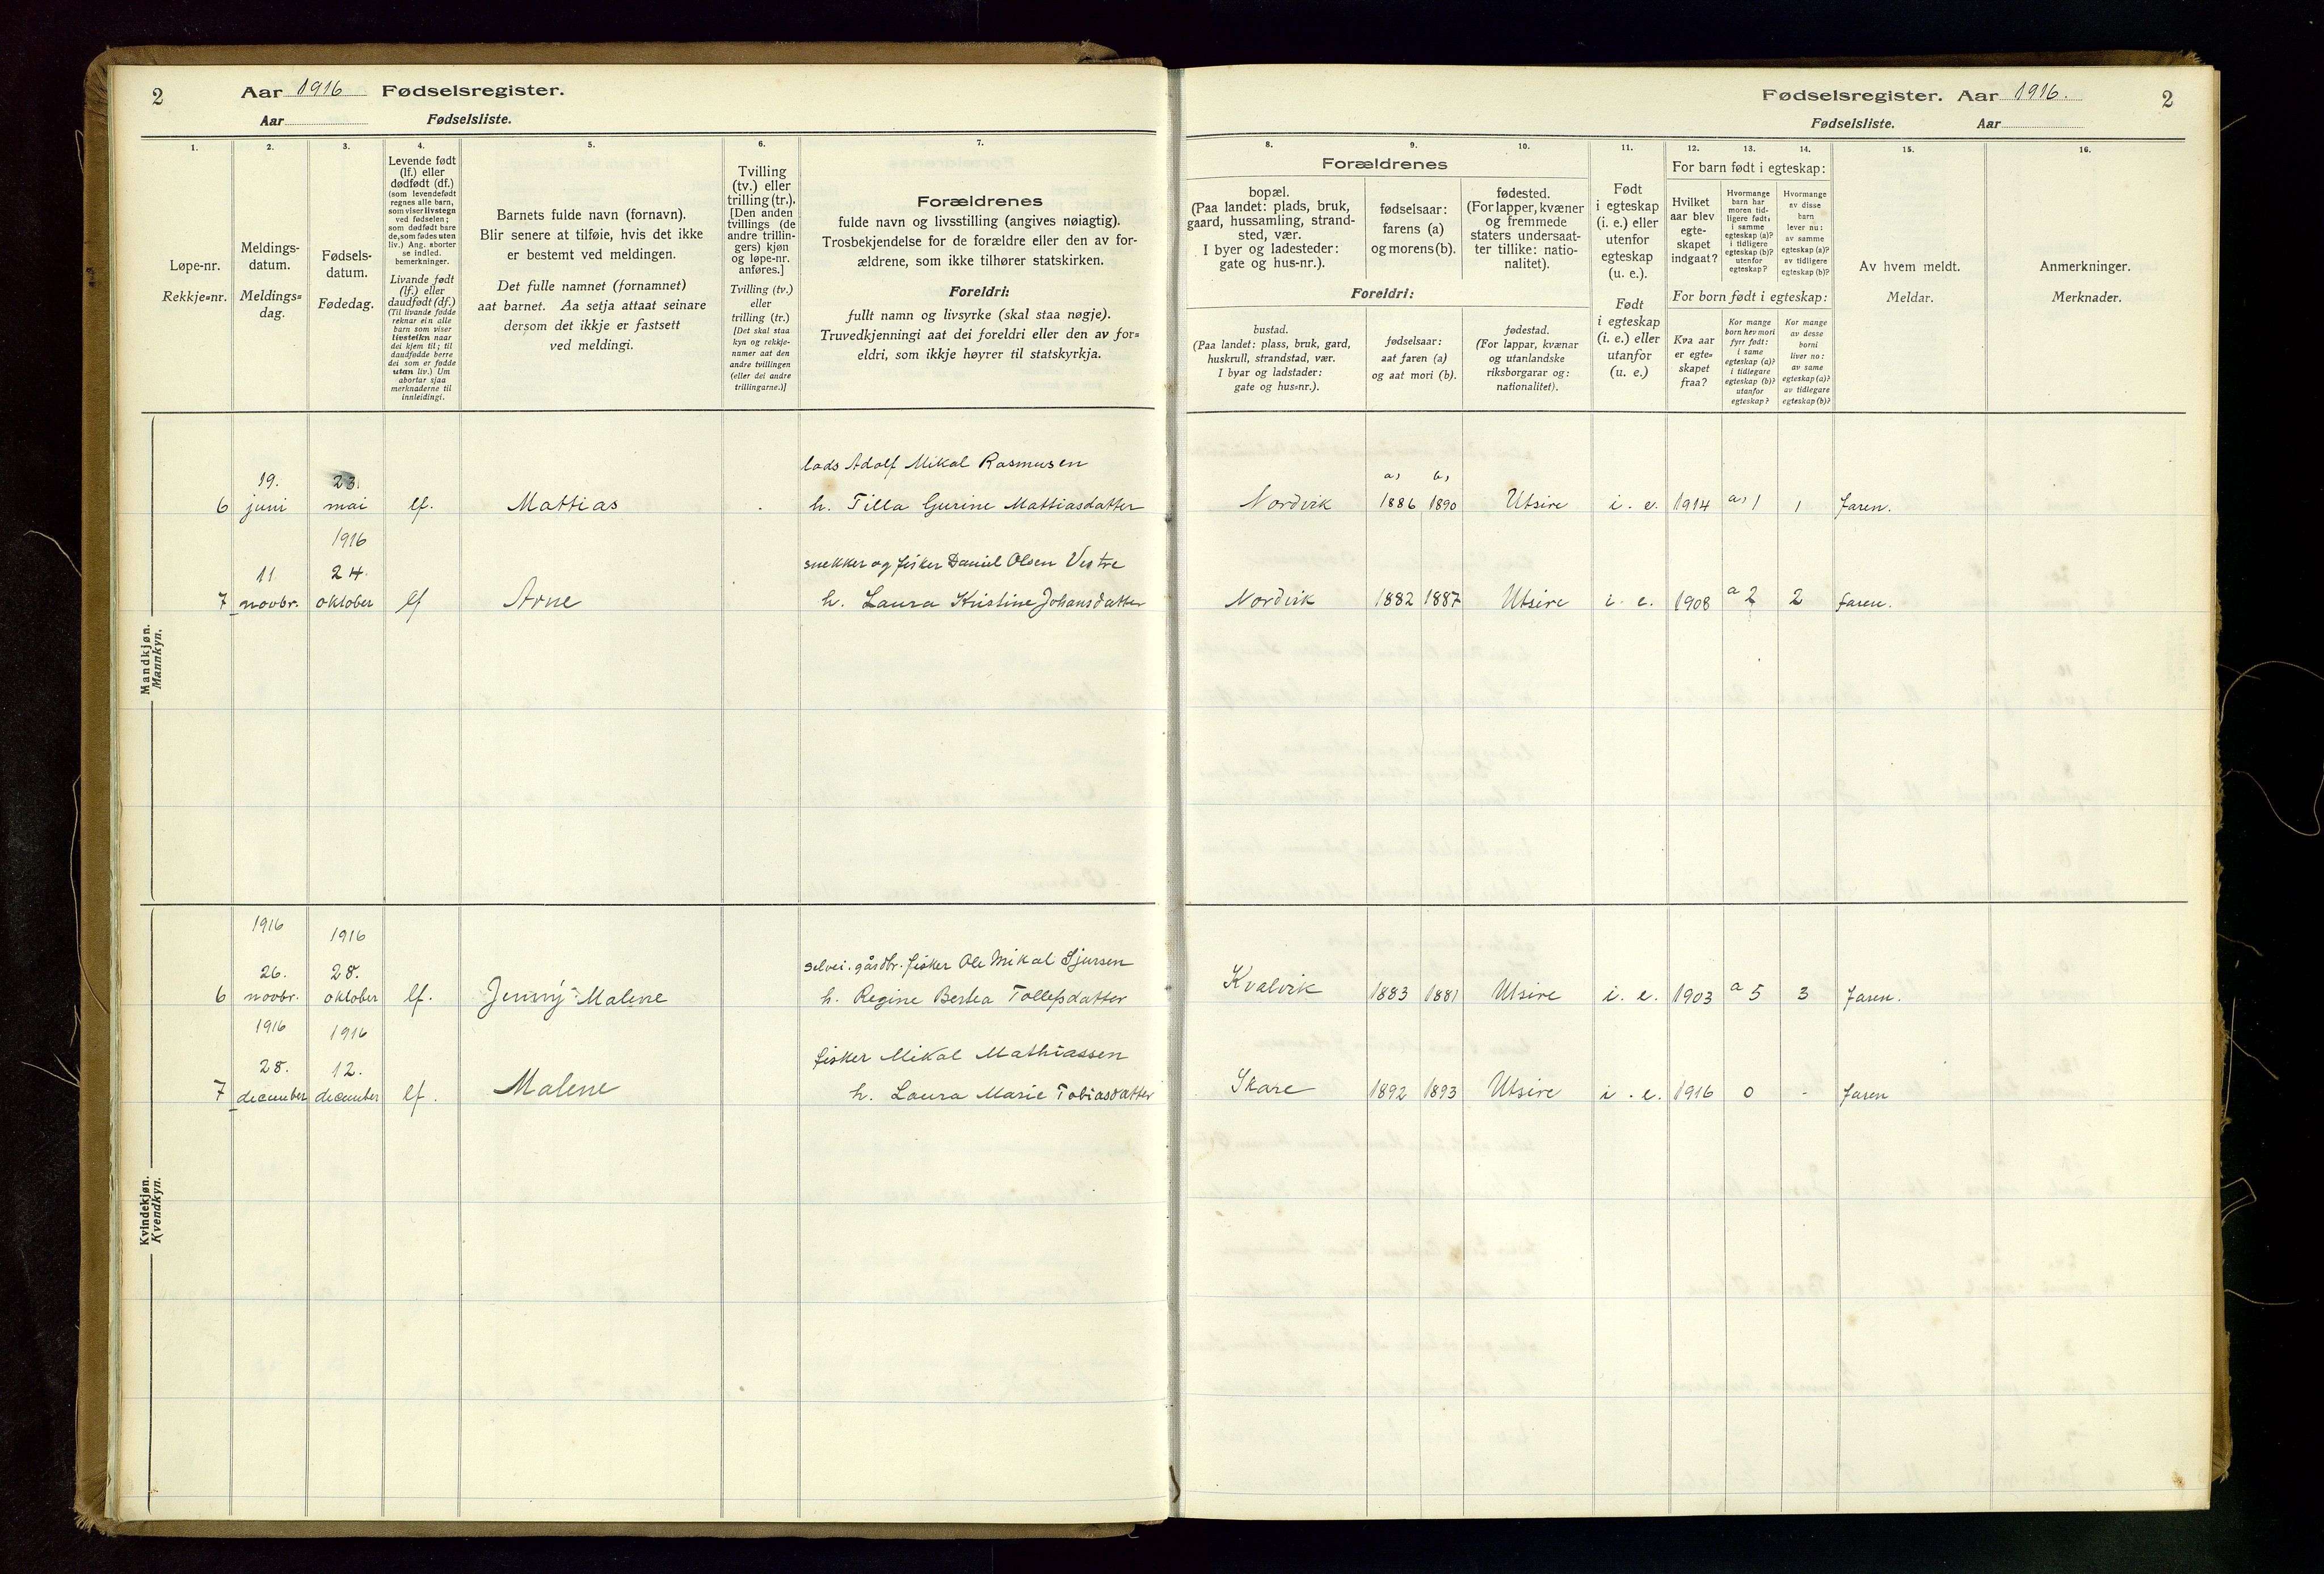 2
Aar 1916 Fødselsregister.
Aar Fødselsliste.
Fødselsregister. Aar 1916.
2
Fødselsliste. Aar
1.
Løpe-nr.
Rekkje=nr.
2.
Meldings-
datum.
Meldings=
dag.
3.
Fødsels-
datum.
Fødedag.
4.
Levende født
(lf.) eller
dødfødt (df.)
(som levendefødt
regnes alle barn,
som viser livstegn
ved fødselen;
som dødfødt bare
de, som fødes uten
liv.) Ang. aborter
se indled.
bemerkninger.
Livande født
(lf.) eller
daudfødt (df.)
(Til livande fødde
reknar ein alle
barn som viser
livsteikn naar
dei kjem til; til
daudfødde berre
dei som er fødde
utan liv.) Um
abortar sjaa
merknaderne til
innleidingi.
5.
Barnets fulde navn (fornavn).
Blir senere at tilføie, hvis det ikke
er bestemt ved meldingen.
Det fulle namnet (fornamnet)
aat barnet. Aa setja attaat seinare
dersom det ikkje er fastsett
ved meldingi.
6.
Tvilling
(tv.) eller
trilling (tr.).
[Den anden
tvillings (de
andre trillin-
gers) kjøn
og løpe-nr.
anføres.]
Tvilling (tv.)
eller
trilling (tr.)
[Det skal staa
kyn og rekkje-
numer aat den
andre tvillingen
(eller dei andre
trillingarne.)]
7.
Forældrenes
fulde navn og livsstilling (angives nøiagtig).
Trosbekjendelse for de forældre eller den av for-
ældrene, som ikke tilhører statskirken.
Foreldri:
fullt namn og livsyrke (skal staa nøgje).
Truvedkjenningi aat dei foreldri eller den av for=
eldri, som ikkje høyrer til statskyrkja.
Forældrenes
8.
bopæl.
(Paa landet: plads, bruk,
gaard, hussamling, strand-
sted, vær.
I byer og ladesteder:
gate og hus-nr.).
9.
fødselsaar:
farens (a)
og morens (b).
10.
fødested.
(For lapper, kvæner
og fremmede
staters undersaat-
ter tillike: natio-
nalitet).
Foreldri:
bustad.
(Paa landet: plass, bruk, gard,
huskrull, strandstad, vær.
I byar og ladstader:
gate og hus=nr.).
fødselsaar:
aat faren (a)
og aat mori (b).
fødestad.
(For lappar, kvænar
og utanlandske
riksborgarar og:
nationalitet).
11.
Født
i egteskap
(i. e.) eller
utenfor
egteskap
(u. e.).
Født
i egteskap
(i. e.) eller
utanfor
(u. e.)
12. 13. 14.
For barn født i egteskap:
Hvilket
aar blev
egte-
skapet
indgaat?
Hvormange
barn har
moren tid-
ligere født:
i samme
egteskap (a)?
i tidligere
egteskap (b)?
utenfor
egteskap?
Hvormange
av disse
barn
lever nu:
av samme
egteskap (a)?
av tidligere
egteskap (b)?
For born født i egteskap:
Kva aar
er egte=
skapet
fraa?
Kor mange
born hev mori
fyrr født:
i same
egteskap (a)?
i tidlegare
egteskap (b)?
utanfor
egteskap?
Kor mange
av desse
borni
liver no:
av same
egteskap (a)?
av tidlegare
egteskap (b)?
15.
Av hvem meldt.
Meldar.
16.
Anmerkninger.
Merknader.
Mandkjøn.
Mannkyn.
19. 23. lods Adolf Mikal Rasmusen a, b,
6 juni mai lf. Mattias h. Tilla Gurine Mattiasdatter Nordvik 1886 1890 Utsire i. e. 1914 a, 1 1 faren.
1916
11. 24. snekker og fisker Daniel Olsen Vestre
7 novbr. oktober lf Arne h. Laura Kristine Johansdatter Nordvik 1882 1887 Utsire i. e. 1908 a 2 2 faren.
Kvindekjøn.
Kvendkyn.
1916 1916
26. 28. selvei. gårdbr. fisker Ole Mikal Sjursen
6 novbr. oktober lf. Jenny Malene h. Regine Bertea Tollefsdatter Kvalvik 1883 1881 Utsire i. e. 1903 a 5 3 faren.
1916 1916
28. 12. fisker Mikal Mathiassen
7 december december lf. Malene h. Laura Marie Tobiasdatter Skare 1892 1893 Utsire i. e. 1916 0 - faren